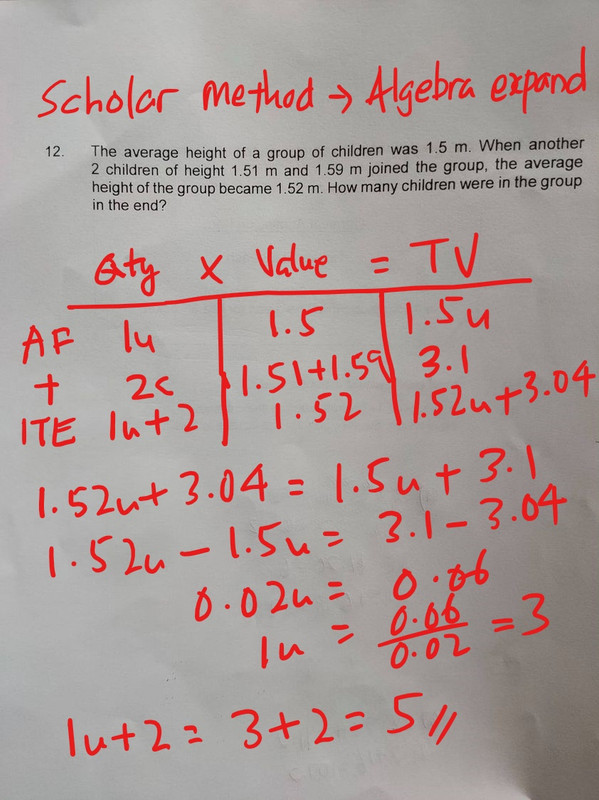 Scholar method → Algebra expand
12. The average height of a group of children was 1.5 m. When another
2 children of height 1.51 m and 1.59 m joined the group, the average
height of the group became 1.52 m. How many children were in the group
in the end?
Qty × Value = TV
AF 1u 1.5 1.5u
+ 2c 1.51+1.59 3.1
ITE 1u+2 1.52 1.52u+3.04
1.52u+3.04 = 1.5u+3.1
1.52u-1.5u = 3.1-3.04
0.02u = 0.06
1u = 0.06/0.02 = 3
1u+2 = 3+2 = 5 //